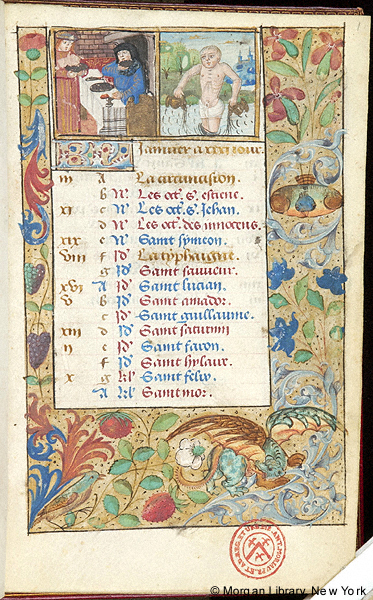 Januier a xxxi iour.
iii A La circuncision.
b N. Les oct. s. estiene.
xi c N. Les oct. s. Jehan.
d N. Les oct. des innocens.
xix e N. Saint symeon.
viii f Nd. La typhaigne.
g Id. Saint sauueur.
xvi A Id. Saint lucian.
v b Id. Saint amador.
c Id. Saint guillaume.
xiii d Id. Saint saturnin
ii e Id. Saint faron.
f Id. Saint hylaire.
x g kl. Saint felix.
A kl. Saint mor.
© Morgan Library, New York